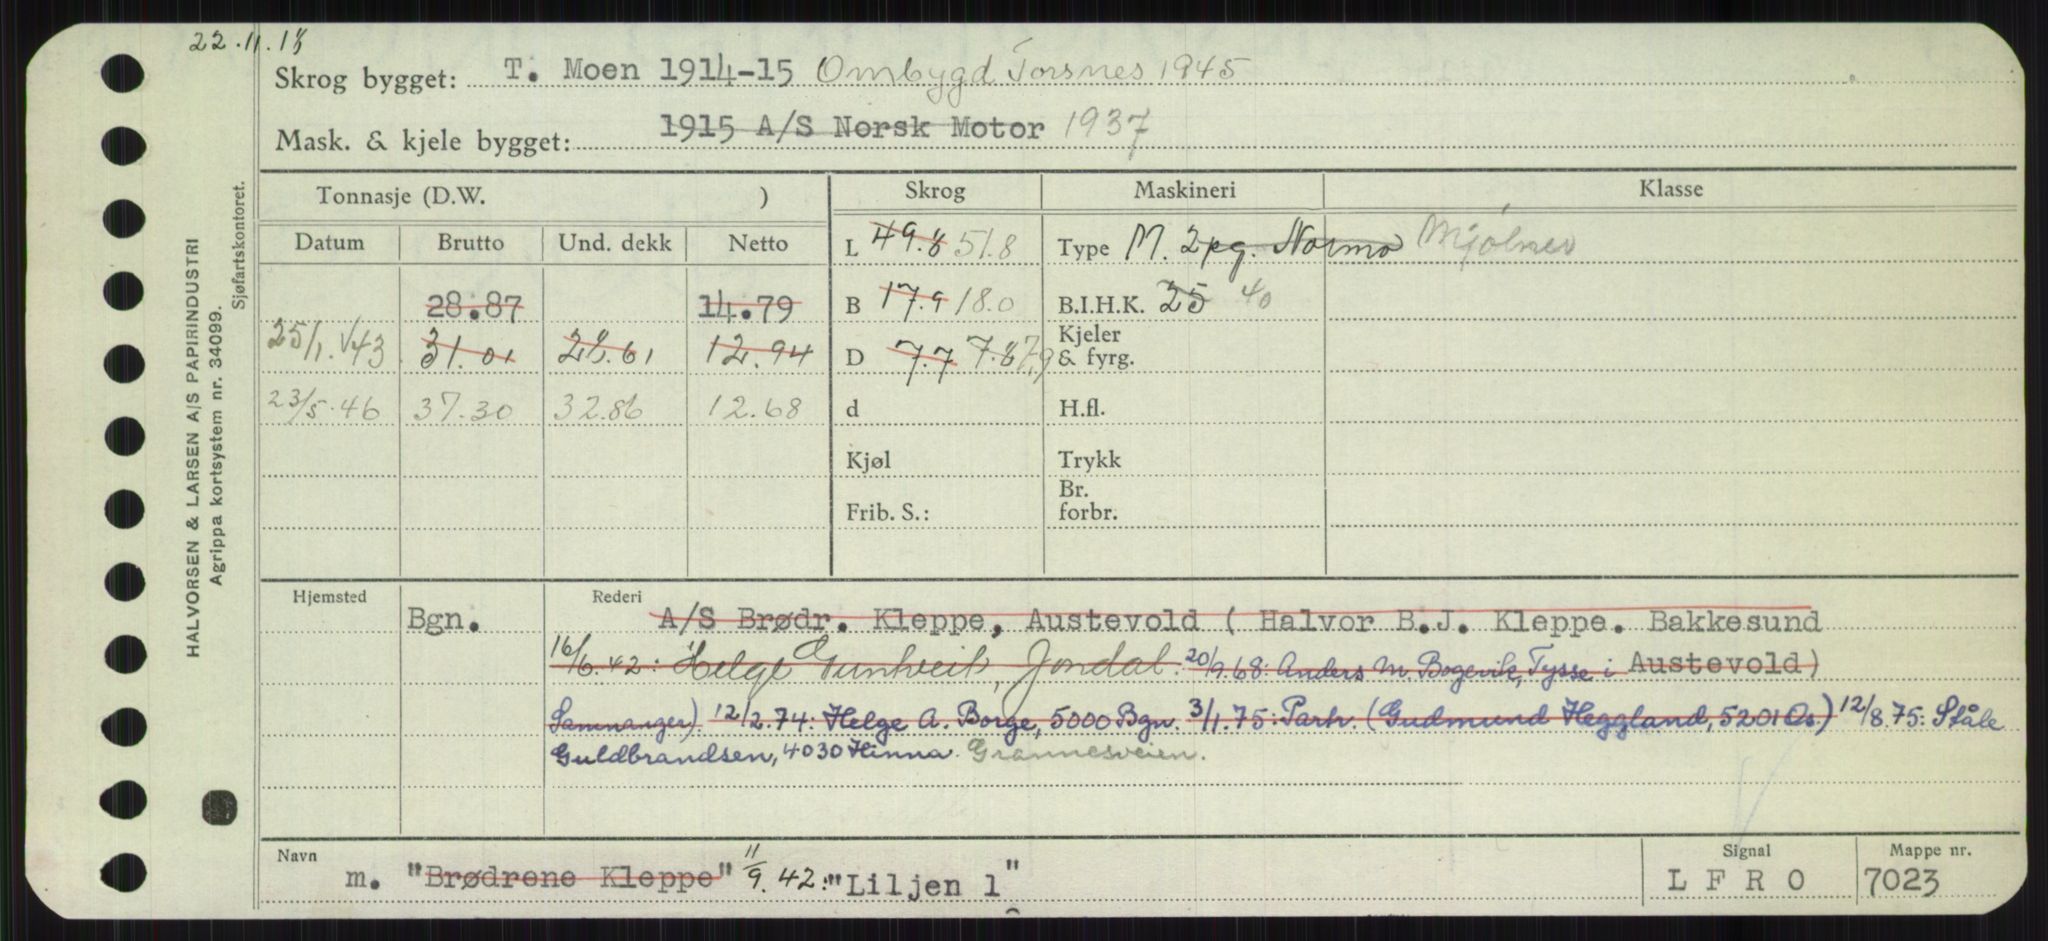 22.11.18
Skrog bygget: T. Moen 1914-15 Ombygd Torsnes 1945
Mask. & kjele bygget: 1915 A/S Norsk Motor 1937
Tonnasje (D.W. ) Skrog Maskineri Klasse
Datum Brutto Und. dekk Netto L 49.8 51.8 Type M. 2pg. Normo Mjølner
28.87 14.79 B 17.9 18.0 B.I.H.K. 25 40
25/1.43 31.01 28.61 12.94 D 7.7 7.8 7,9 Kjeler & fyrg.
23/5.46 37.30 32.86 12.68 d H.fl.
Kjøl Trykk
Frib. S.: Br. forbr.
Hjemsted Bgn. Rederi A/S Brødr. Kleppe, Austevold ( Halvor B.J. Kleppe. Bakkesund
16/6.42: Helge Tunheit, Jondal. 20/9.68: Anders M. Bogevik, Tysse i Austevold)
Samnanger). 12/2.74: Helge A. Borge, 5000 Bgn. 3/1.75: Partr. (Gudmund Heggland, 5201 Os) 12/8.75: Ståle
Guldbrandsen, 4030 Hinna. Grannesveien.
Navn Signal Mappe nr.
m. "Brødrene Kleppe" 11/9.42: "Liljen 1" L F R O 7023
HALVORSEN & LARSEN A/S PAPIRINDUSTRI
Agrippa kortsystem nr. 34099.
Sjøfartskontoret.